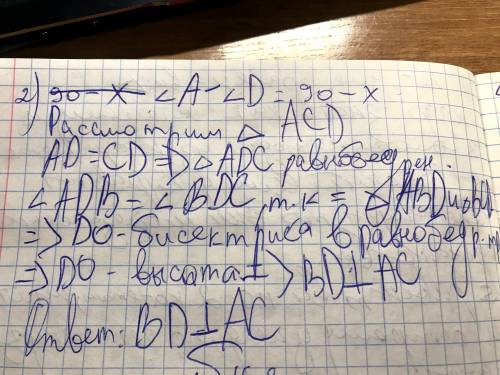 2) 90-x ∠A-∠D = 90-x
Рассмотрим △ ACD
AD=CD=> △ADC равнобедрен.
∠ADB = ∠BDC, т.к = △ABD и
=> DO-бисектриса в равнобедр.тр
=> DO-высота => BD⊥AC
Ответ: BD⊥AC